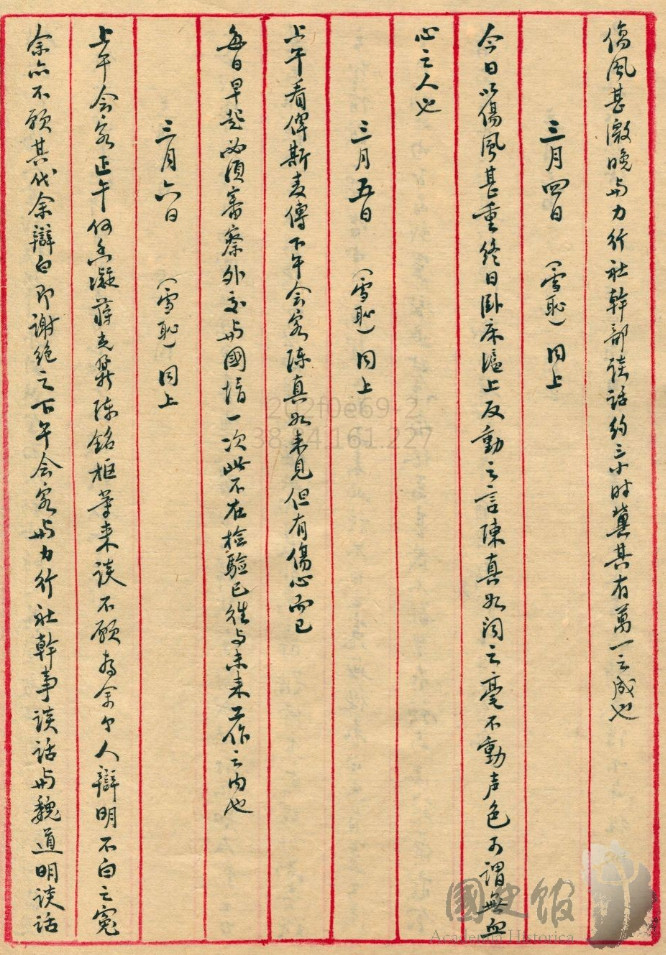 傷風甚激晚与力行社幹部談話約三小时冀其有萬一之成也
三月四日 (雪恥) 同上
今日以傷風甚重終日臥床滬上反動之言陳真如闻之毫不動声色可謂無血
心之人也
三月五日 (雪恥) 同上
上午看俾斯麦傳下午会客陳真如未見但有傷心而已
每日早起必須審察外交与國情一次此不在檢驗已往与未来工作之内也
三月六日 (雪恥) 同上
上午会客正午何香凝蔣光鼐陈銘枢等来談不願為余个人辯明不白之冤
余亦不願其代余辯白即謝絕之下午会客与力行社幹事談話与魏道明談話
202f0e69-2
38.14.161.227
國史館
Academia Historica